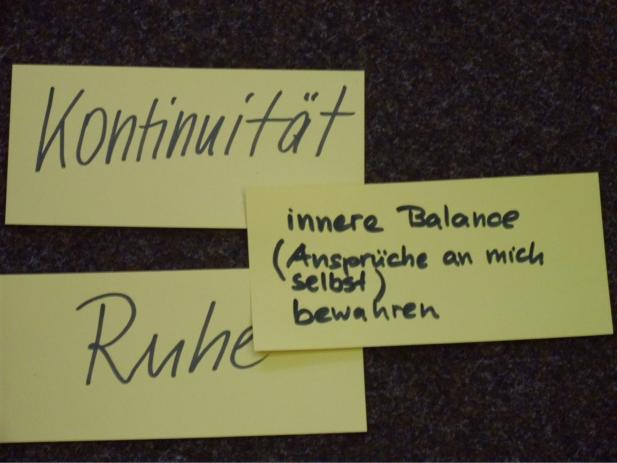 Kontinuität
innere Balance
(Ansprüche an mich
selbst)
bewahren
Ruhe